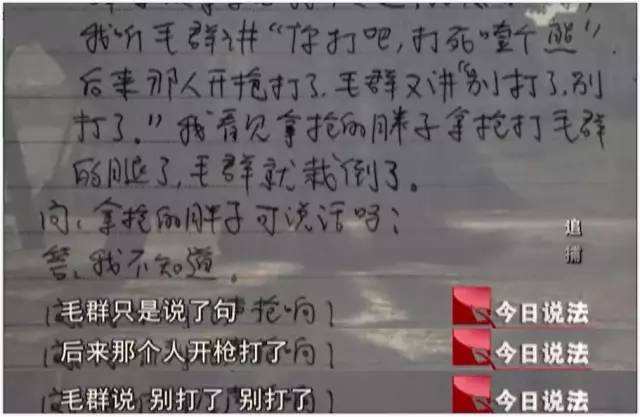 我听毛群讲“你打吧,打死噇个熊”.
后来那人开抢打了.毛群又讲“别打了,别
打了。”我看见拿抢的胖子拿抢打毛群
的腿了,毛群就栽倒了。
问:拿抢的胖子可说话吗?
答:我不知道。
追捕
毛群只是说了句
今日说法
后来那个人开枪打了
今日说法
毛群说 别打了 别打了
今日说法